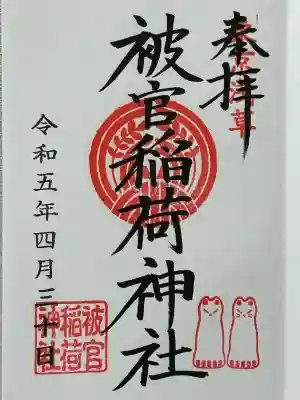 奉拝
東京浅草
被官稲荷神社
令和五年四月三十日
被官
稲荷
神社